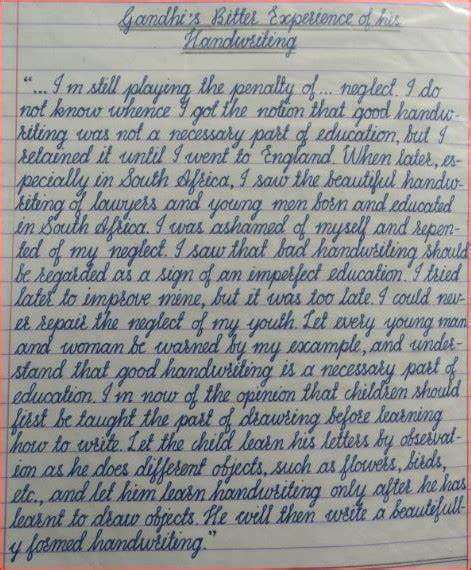 Gandhi's Bitter Experience of his
Handwriting
"... I m still playing the penalty of ... neglect. I do
not know whence I got the notion that good handw-
riting was not a necessary part of education, but I
retained it until I went to England. When later, es-
pecially in South Africa, I saw the beautiful handw-
riting of lawyers and young men born and educated
in South Africa. I was ashamed of myself and repen-
ted of my neglect. I saw that bad handwriting should
be regarded as a sign of an imperfect education. I tried
later to improve mene, but it was too late. I could nev-
er repair the neglect of my youth. Let every young man
and woman be warned by my example, and under-
stand that good handwriting is a necessary part of
education. I m now of the opinion that children should
first be taught the part of drawing before learning
how to write. Let the child learn his letters by observat-
ion as he does different objects, such as flowers, birds,
etc., and let him learn handwriting only after he has
learnt to draw objects. He will then write a beautifull-
y formed handwriting."